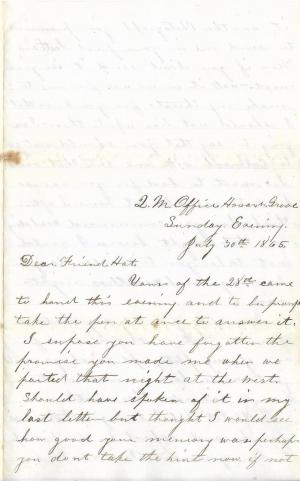 Q. M. Office Howard Grove
Sunday Evening
July 30th 1865.
Dear Friend Hat.
Yours of the 28th came
to hand this evening and to be
take the pen at once to answer it.
I supose you have forgotten the
promise you made me when we
parted that night at the West.
Should have spoken of it in my
last letter but thought I would see
how good your memory was perhaps
you dont take the hint now if not